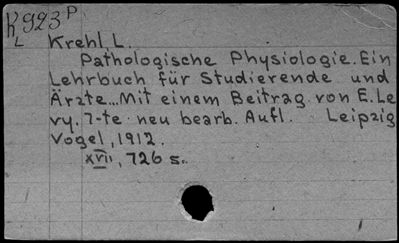 K923 P
L
Krehl, L.
Pathologische Physiologie. Ein
Lehrbuch für Studierende und
Ärzte...Mit einem Beitrag von E. Le
vy. 7-te neu bearb. Aufl. Leipzig
Vogel, 1912.
XVII, 726 s.